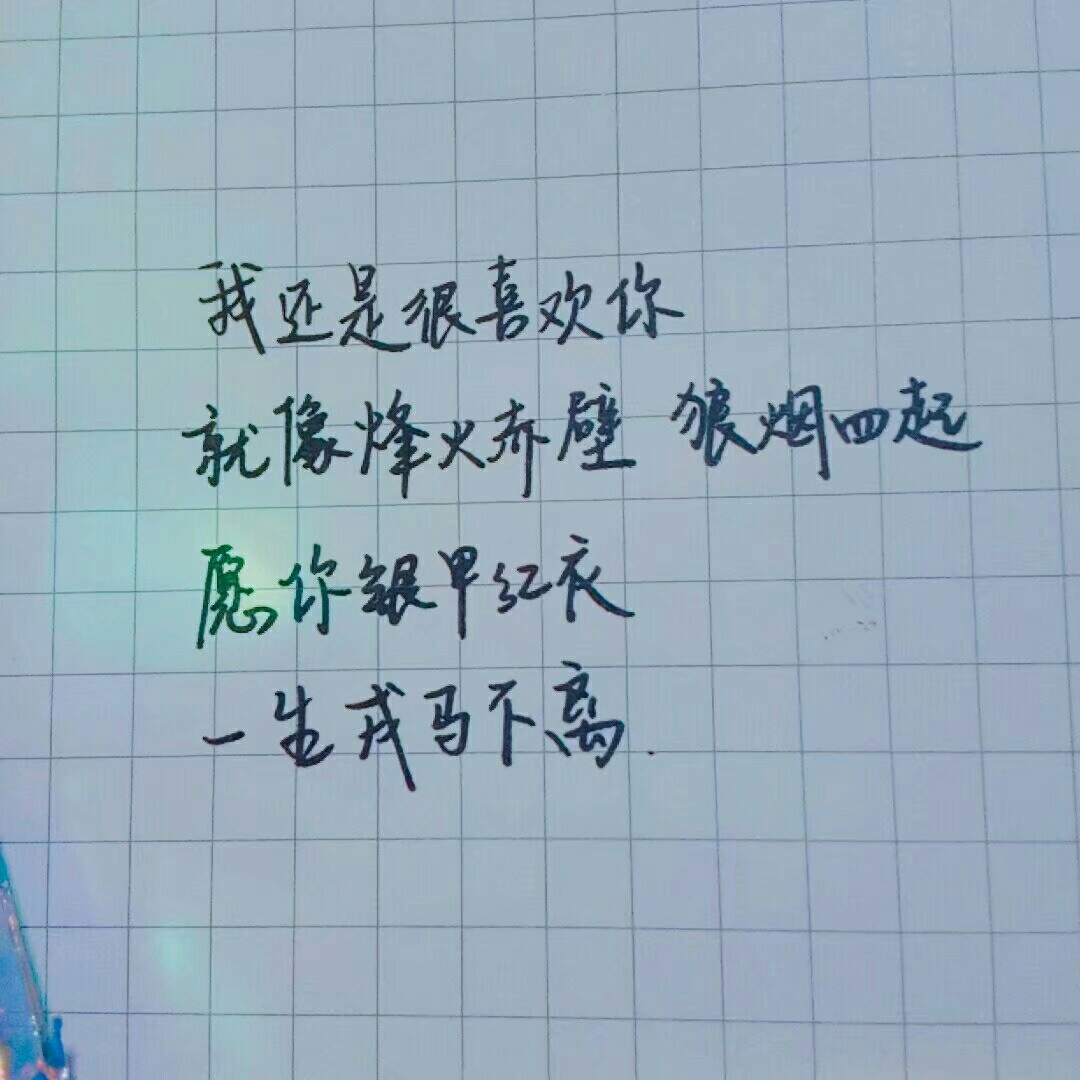 我还是很喜欢你
就像烽火赤壁 狼烟四起
愿你银甲红衣
一生戎马不离.